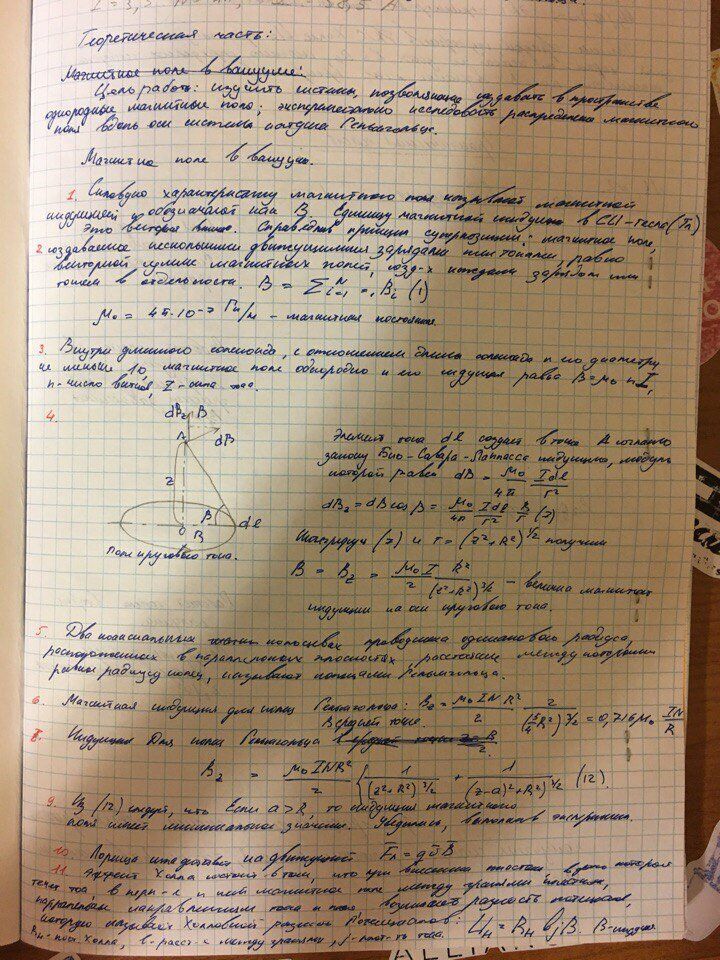 Теоретическая часть:
Магнитное поле в вакууме:
Цель работы: изучить системы, позволяющие создавать в пространстве
однородные магнитные поля; экспериментально исследовать распределение магнитного
поля вдоль оси системы кольца Гельмгольца.
Магнитно поле в вакууме.
1. Силовую характеристику магнитного поля называют магнитной
индукцией обозначают или B. Единицу магнитной индукции в СИ - тесла (Тл)
Это вектор. Справедлив принцип суперпозиции: магнитное поле,
2. создаваемое несколькими движущимися зарядами или токами, равно
векторной сумме магнитных полей, созд-х каждым зарядом или
током в отдельности. B = Σ i=1 N = Bi (1)
μ0 = 4π·10-7 Гн/м - магнитная постоянная.
3. Внутри длинного соленоида, с отношением длины соленоида к его диаметру
не меньше 10, магнитное поле однородно и его индукция равна B = μ0 n I,
n - число витков, I - сила тока.
4.
dBz B
dB
A
z
β
O
R
dl
Поле кругового тока.
Элемент тока dl создает в точке A согласно
закону Био-Савара-Лапласса индукцию, модуль
которой равен dB = μ0/4π Idl/r²
dBz = dB cos β = μ0/4π Idl/r² R/r (2)
(2) и r = (z²+R²)^1/2 получим
B = Bz = μ0 I/2 R²/(z²+R²)^3/2 - величина магнитной
индукции на оси кругового тока.
5. Два коаксиальных кольцевых проводника одинакового радиуса,
расположенных в параллельных плоскостях, расстояние между которыми
равно радиусу колец, называют кольцами Гельмгольца.
6. Магнитная индукция для колец Гельмгольца: B0 = μ0 I N R²/2 2/(5/4 R²)^3/2 = 0,716 μ0 IN/R
В средней точке.
8. Индукция Для колец Гельмгольца в средней точке z = R/2.
Bz = μ0 I N R²/2 { 1/(z²+R²)^3/2 + 1/((z-a)²+R²)^3/2 (12).
9. Из (12) следует, что Если a > R, то индукция магнитного
поля имеет минимальное значение. Убедились, выполнив эксперимент.
10. Лоренца на движущийся Fл = q v B
11. Эффект Холла состоит в том, что при внесении пластины, вдоль которой
течет ток, в перп-е к ней магнитное поле между гранями пластины,
параллельном направлениям тока и поля возникает разность потенциалов,
которую называют Холловской разность Потенциалов: UH = RH b j B. B - индукция
RH - пост. Холла, b - расст-е между гранями, j - плот-ть тока.